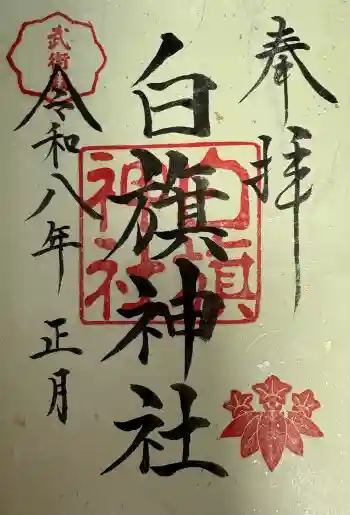 奉拝
白旗神社
白旗神社
令和八年 正月